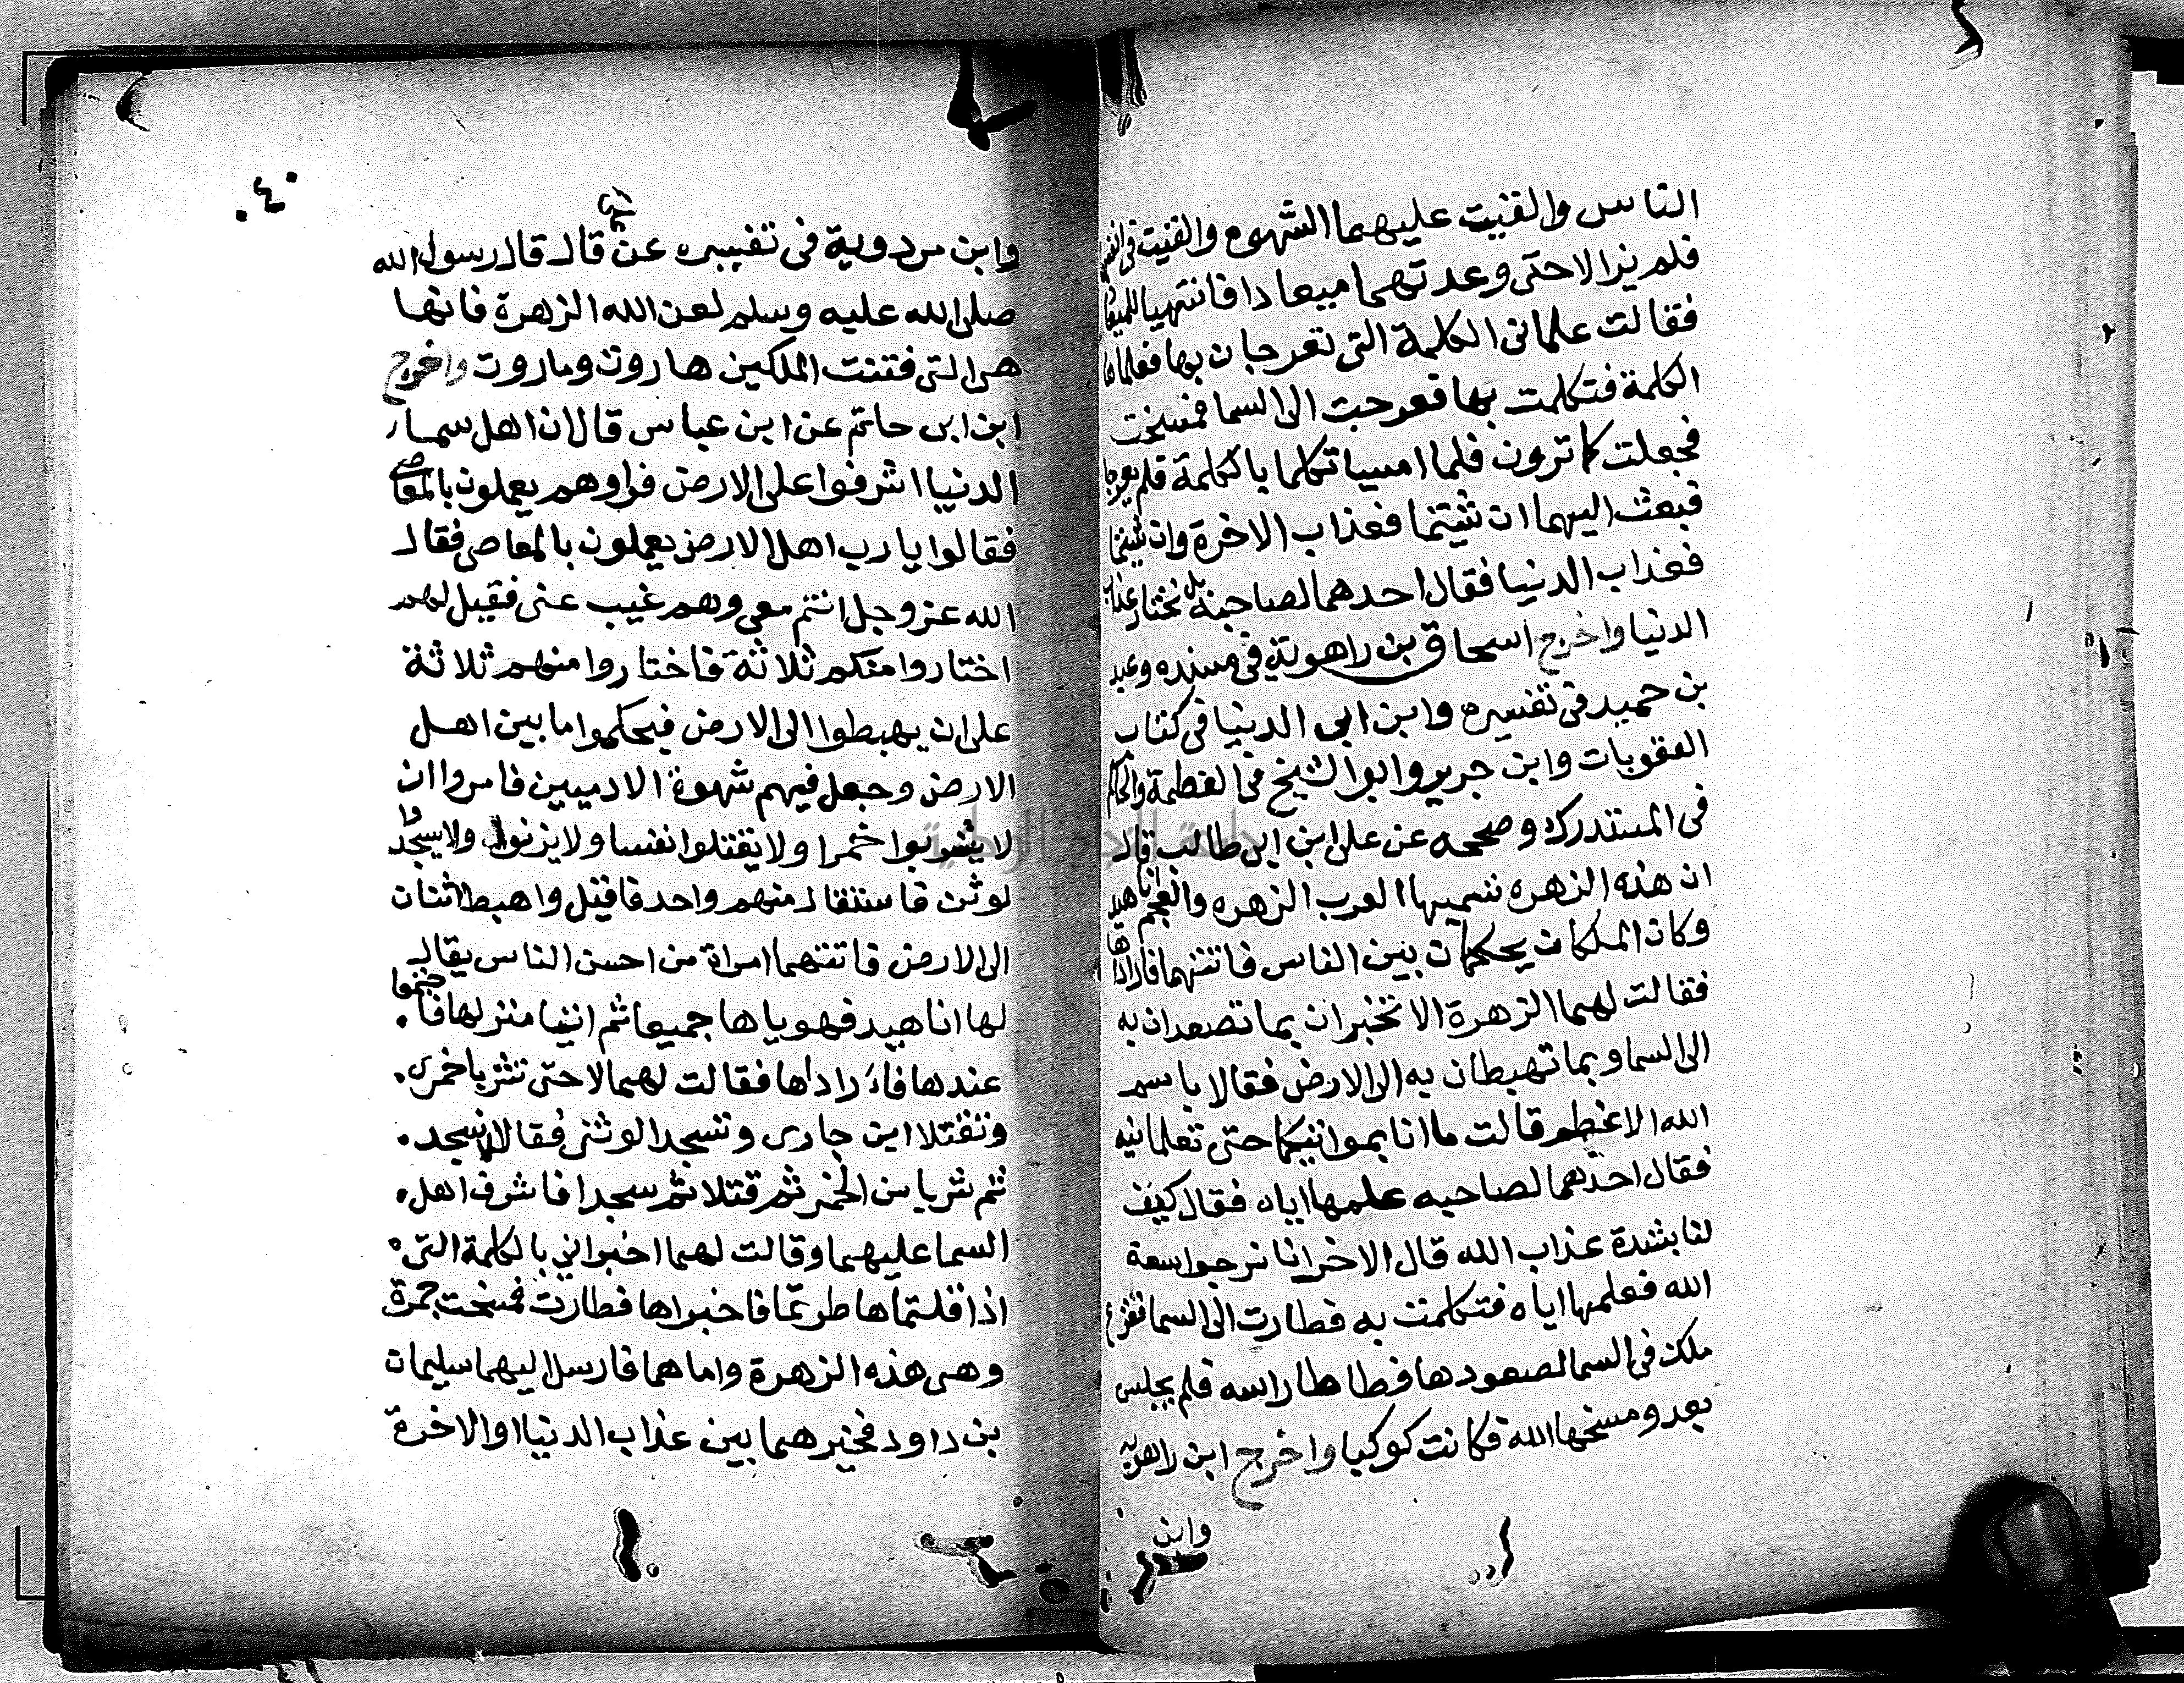 الناس والقيت عليهما الشهوه والقيت في انفس
فلم يزالا حتى وعدتهما ميعادا فانتهيا للميعاد
فقالت علماني الكلمة التي تعرجان بها فعلماها
الكلمة فتكلمت بها فعرجت الى السما فمسخت
فجعلت كما ترون فلما امسيا تكلما بالكلمة فلم يعرجا
فبعث اليهما ان شيتما فعذاب الاخرة وان شيتما
فعذاب الدنيا فقال احدهما لصاحبه بل نختار عذاب
الدنيا واخرج اسحاق بن راهوية في مسنده وعبد
بن حميد في تفسيره وابن ابي الدنيا في كتاب
العقوبات وابن جرير وابو الشيخ في العظمة والحاكم
في المستدرك وصححه عن على ابن ابى طالب قال
ان هذه الزهره تسميها العرب الزهره والعجم اناهيد
وكان الملكان يحكمان بين الناس فاتتهما فاراداها
فقالت لهما الزهرة الا تخبران بما تصعدان به
الى السما وبما تهبطان به الى الارض فقالا باسم
الله الاعظم قالت ما انا بمواتيتكما حتى تعلمانيه
فقال احدهما لصاحبه علمها اياه فقال كيف
لنا بشدة عذاب الله قال الاخر انا نرجوا سعة
الله فعلمها اياه فتكلمت به فطارت الى السما ففزع
ملك في السما لصعودها فطاطا راسه فلم يجلس
بعد ومسخها الله فكانت كوكبا واخرج ابن راهوية
وابن
٤٠
وابن مردوية في تفسيره عن قال قال رسول الله
صلى الله عليه وسلم لعن الله الزهرة فانها
هى التى فتنت الملكين هاروت وماروت واخرج
ابن ابى حاتم عن ابن عباس قال ان اهل سما
الدنيا اشرفوا على الارض فراوهم يعملون بالمعاصي
فقالوا يا رب اهل الارض يعملون بالمعاصى فقال
الله عز وجل انتم معى وهم غيب عنى فقيل لهم
اختاروا منكم ثلاثة فاختاروا منهم ثلاثة
على ان يهبطوا الى الارض فيحكموا ما بين اهل
الارض وجعل فيهم شهوة الادميين فامروا ان
لا يشربوا خمرا ولا يقتلوا نفسا ولا يزنوا ولا يسجدوا
لوثن فاستقال منهم واحد فاقيل واهبط اثنان
الى الارض فاتتهما امراة من احسن الناس يقال
لها اناهيد فهوياها جميعا ثم اتيا منزلها فاجتمعا
عندها فاراداها فقالت لهما لا حتى تشربا خمرى
وتقتلا ابن جارى وتسجدا لوثنى فقالا لا نسجد
ثم شربا من الخمر ثم قتلا ثم سجدا فاشرف اهل
السما عليهما وقالت لهما اخبراني بالكلمة التى
اذا قلتماها طرتما فاخبراها فطارت فمسخت جمرة
وهى هذه الزهرة واما هما فارسل اليهما سليمان
بن داود فخيرهما بين عذاب الدنيا او الاخرة